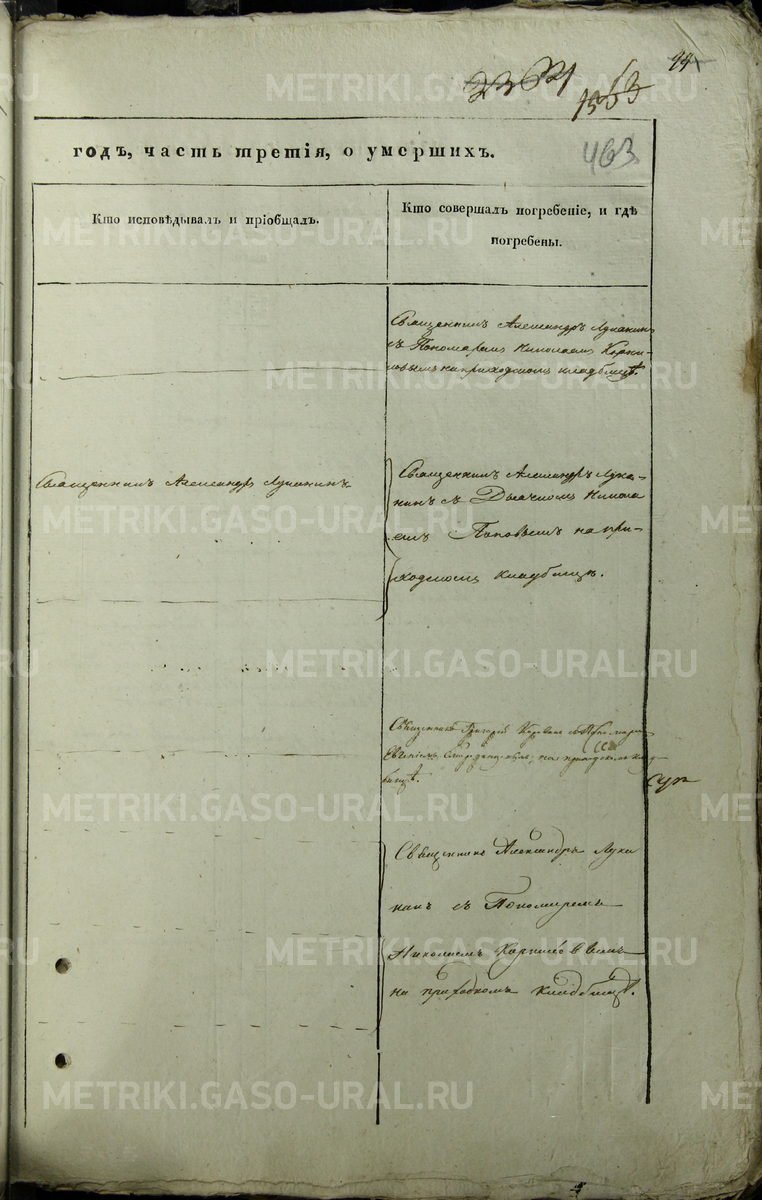 44
1353
463
годъ, часть третія, о умершихъ.
Кто исповѣдывалъ и пріобщалъ.
Кто совершалъ погребеніе, и гдѣ
погребены.
Священникъ Александръ Луканинъ
съ Пономаремъ Николаемъ
на приходскомъ кладбищѣ.
Священникъ Александръ Луканинъ
Священникъ Александръ Лука-
нинъ съ Дьячкомъ Никола
емъ Поповымъ на при-
ходскомъ кладбищѣ.
Священникъ Григорій съ Пономаремъ
Евгеніемъ на приходскомъ клад
бищѣ.
Священникъ Александръ Лука
нинъ съ Пономаремъ
Николаемъ
на приходскомъ кладбищѣ.
METRIKI.GASO-URAL.RU